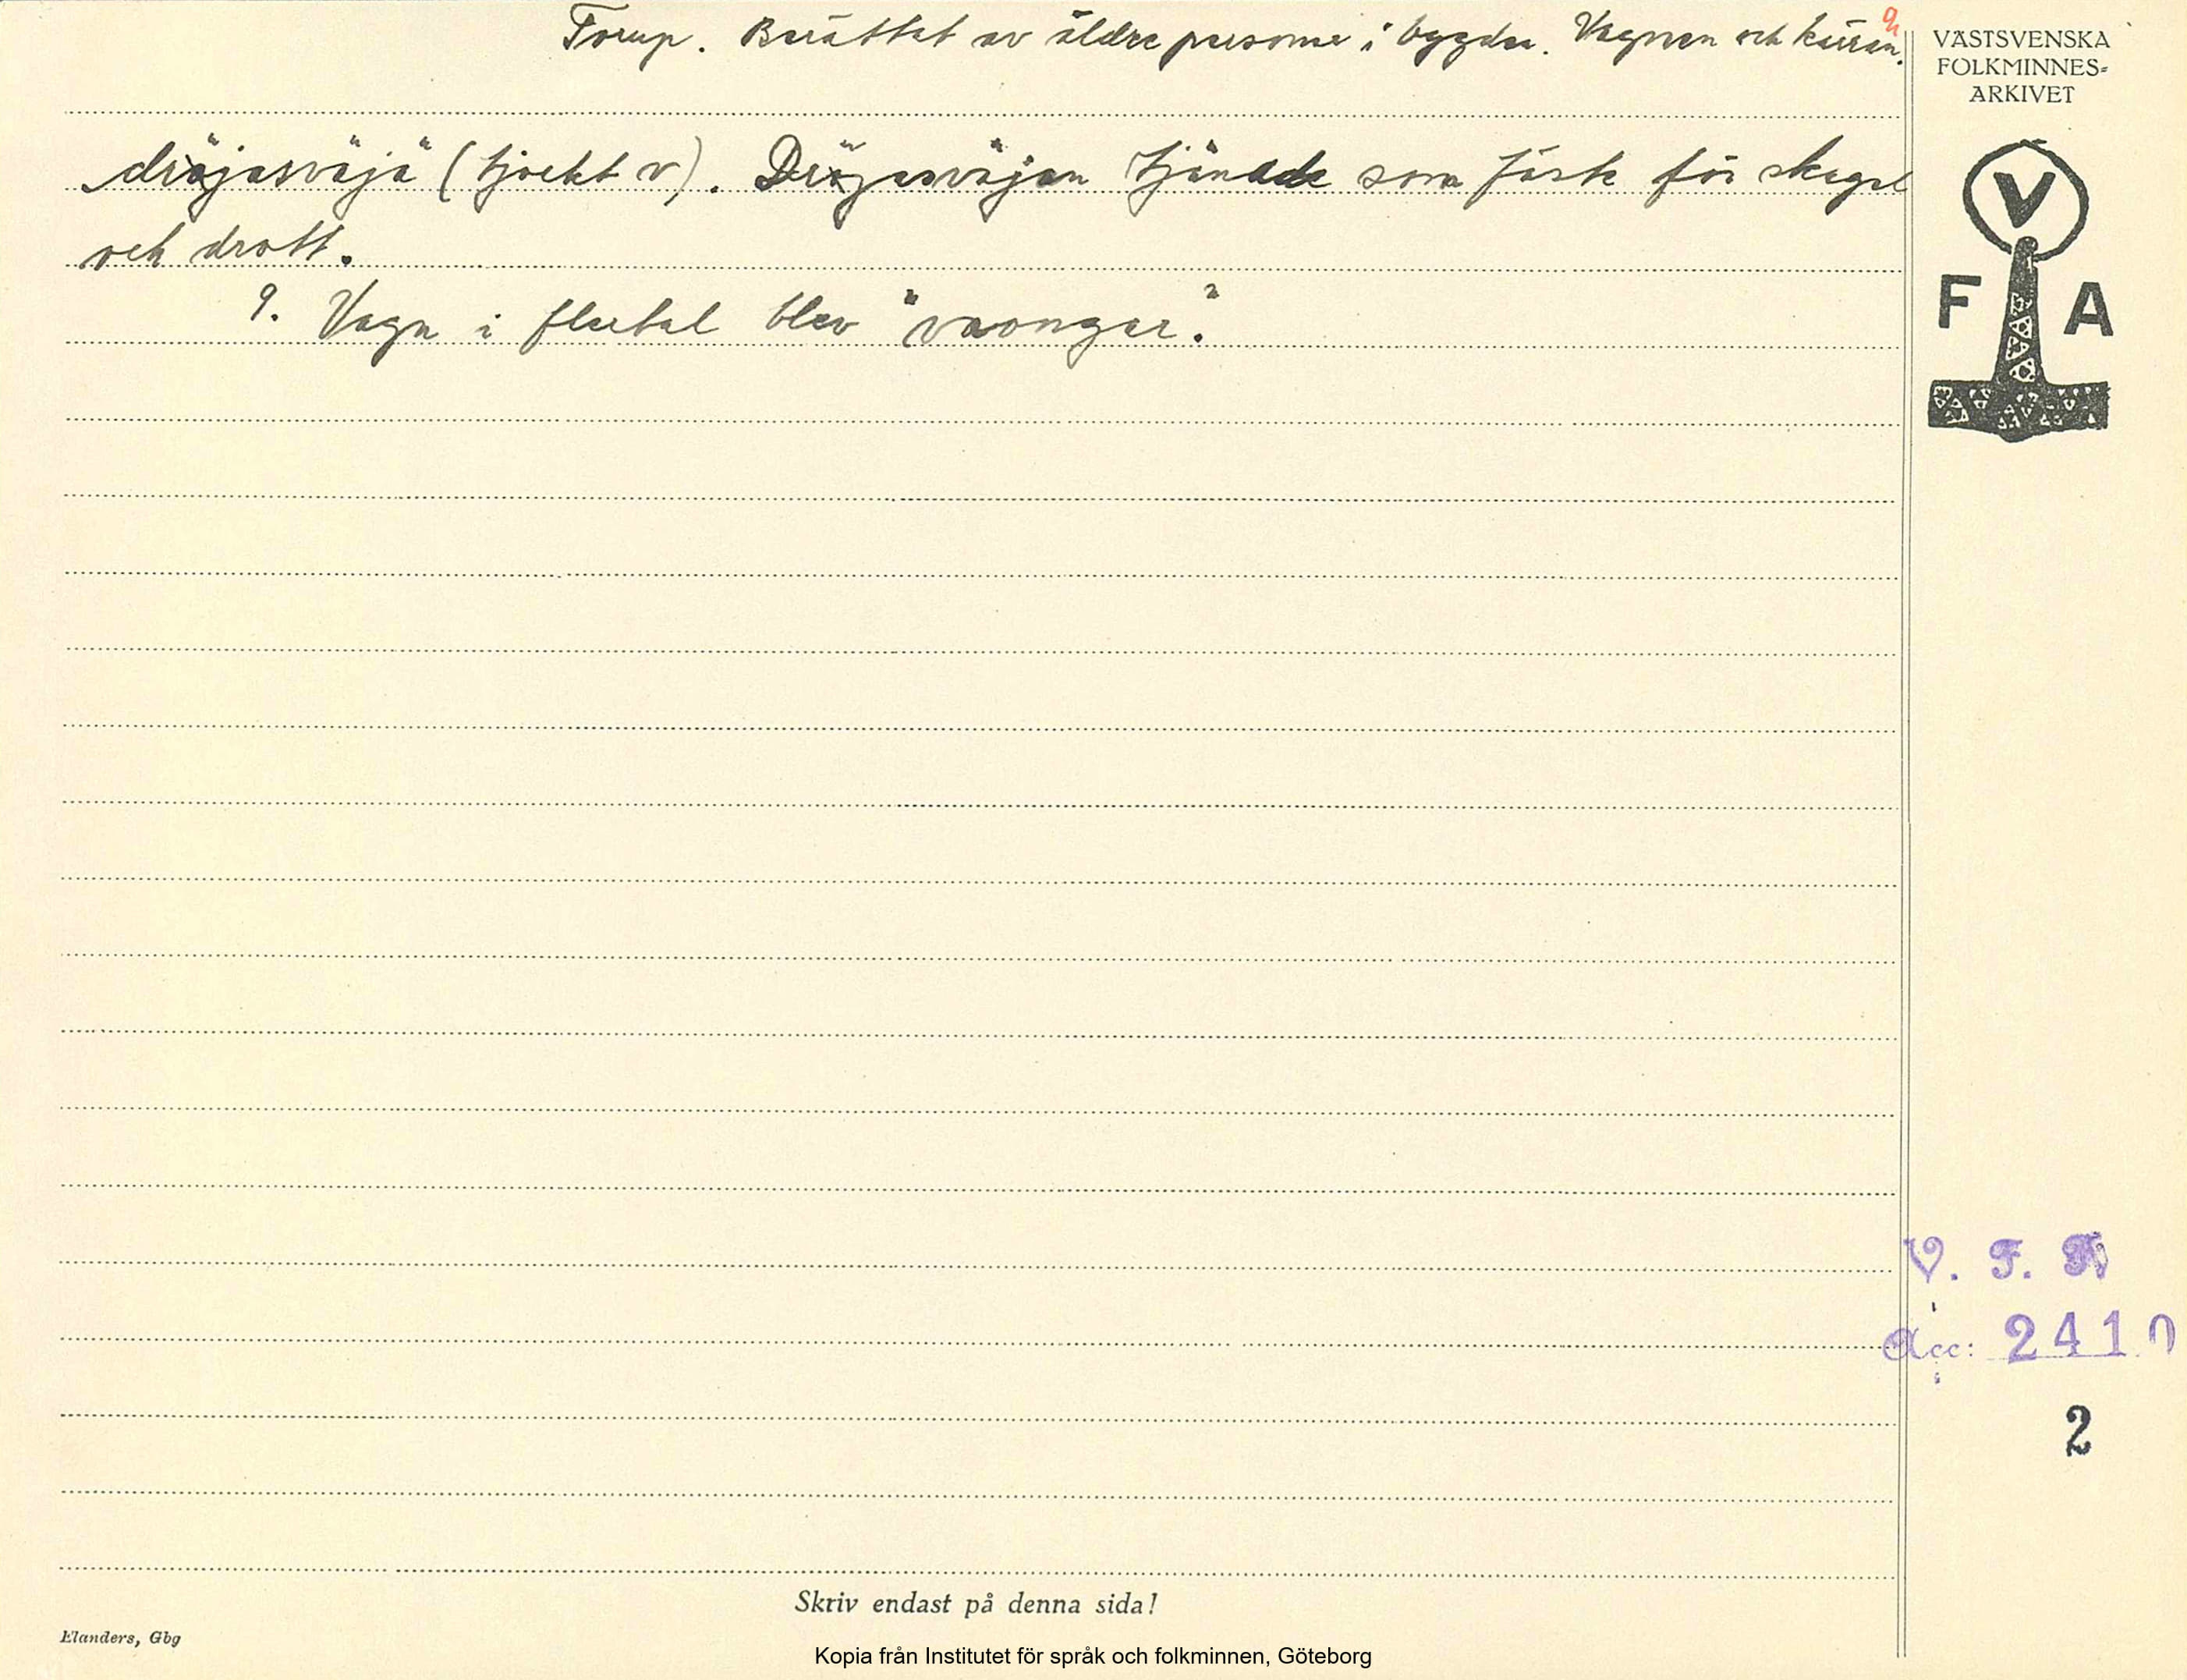 Torup. Berättat av äldre personer i bygden. Vagnen och kärran.
VÄSTSVENSKA
FOLKMINNES-
ARKIVET
dräjasväjä (tjockt v). Dräjasväjan tjänade som fäste för skagel
och drott.
9. Vagn i flertal blev "vaongar."
V
F A
V. F. A
Acc: 2410
2
Skriv endast på denna sida!
Elanders, Gbg
Kopia från Institutet för språk och folkminnen, Göteborg